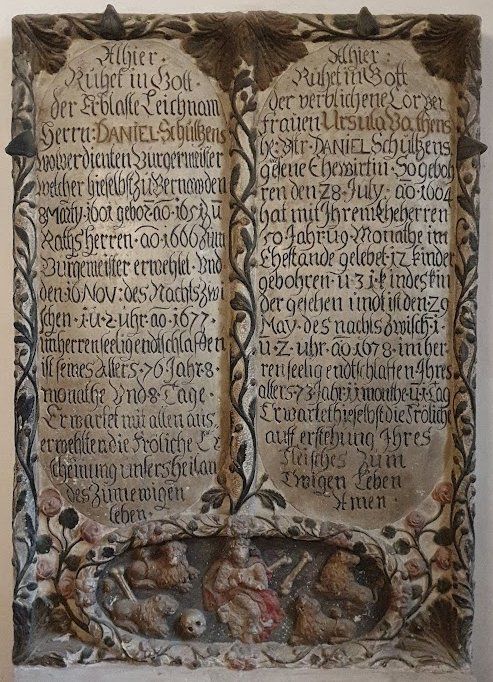 Alhier.
Ruhet in Gott
der Erblaste Leichnam
Herrn: DANIEL Schültzens
wolverdienten Burgermeister
welcher hieselbst zu Bernaw den
8 Marty. 1601 gebor. ao. 1651 zu
Raths herren. ao. 1666 zum
Burgermeister erwehlet. Und
den 16 NOV: des Nachts Zwi
schen. 1. u. 2 uhr. ao. 1677.
im herren seelig endtschlaffden
ist seines Alters. 76 Jahr. 8.
monathe Und 8 Tage.
Erwartet mit allen aus
erwehlten die Fröliche Er
scheinung unsers heilan
des Zum ewigen
leben.
Alhier.
Ruhet in Gott
der verblichene Cörper
frauen Ursula
Hr. Btr. DANIEL Schültzens
Ehewirtin. So geboh
ren den 28. July. ao. 1604
hat mit Ihrem Eheherren
50 Jahr u 9 Monathe im
Ehestande gelebet. 12 kinder
gebohren. u. 31. kindeskin
der gesehen den 29
May. des nachts zwisch. 1.
u. 2. uhr. ao 1678. im her
ren seelig endtschlaffen Ihres
alters. 73 Jahr 11 monthe. u. 1. Tag
Erwartet hieselbst die Fröliche
auff erstehung Ihres
fleisches Zum
Ewigen Leben
Amen.